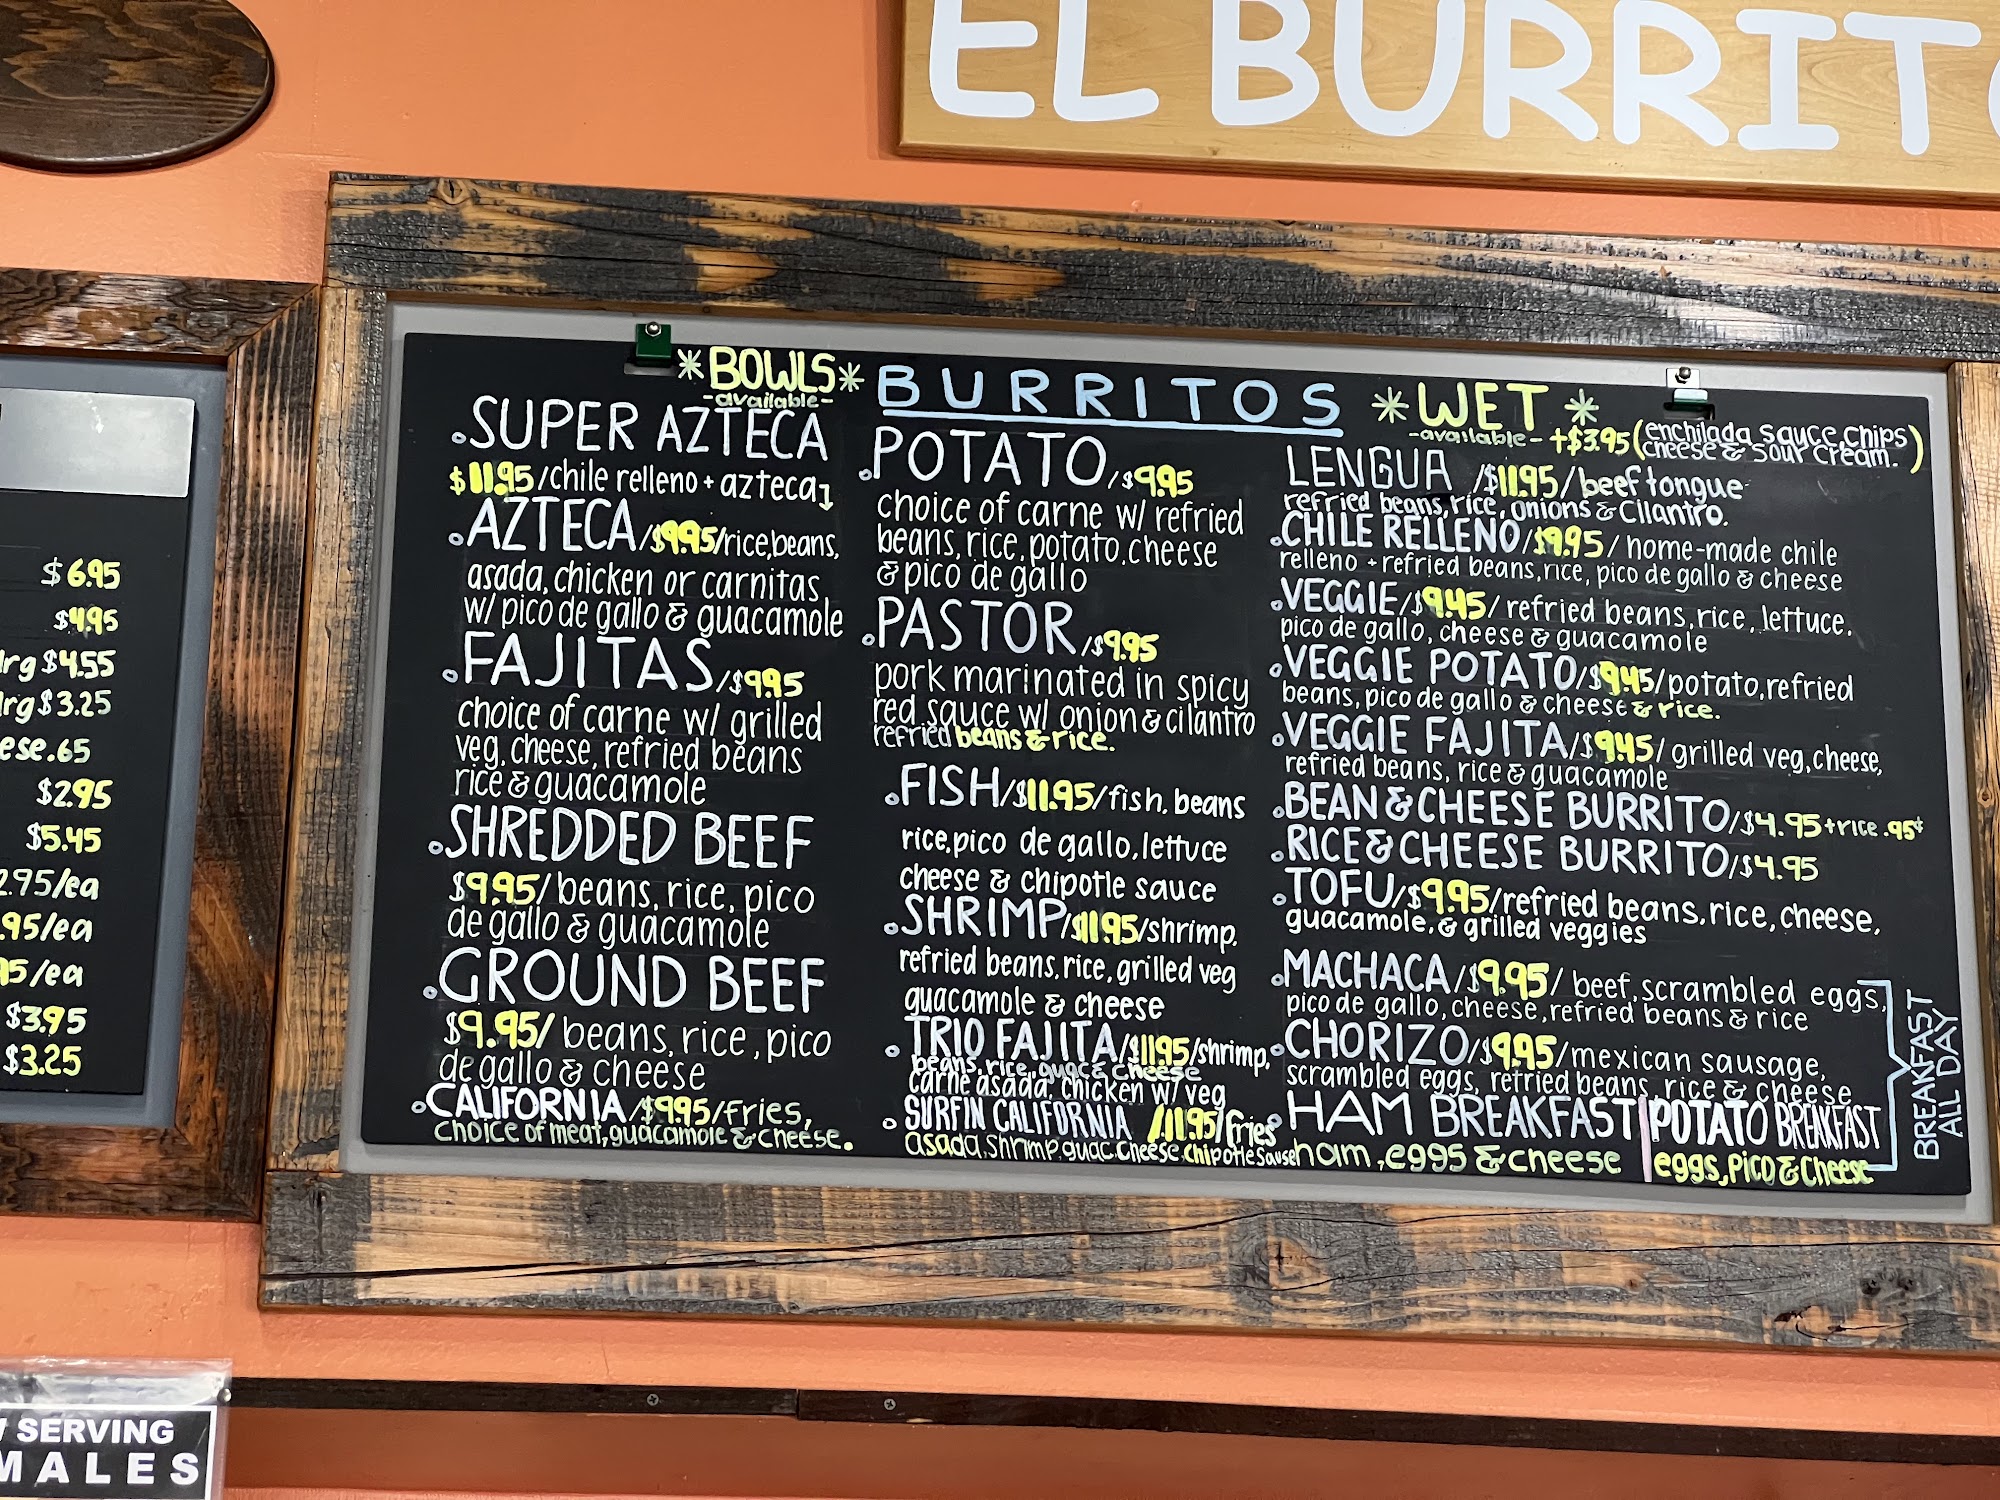 EL BURRIT
$6.95
$4.95
lrg $4.55
lrg $3.25
ese .65
$2.95
$5.45
2.95/ea
.95/ea
95/ea
$3.95
$3.25
SERVING
MALES
*BOWLS*
-available-
BURRITOS
*WET*
-available- +$3.95 (enchilada sauce chips
cheese & sour cream.)
SUPER AZTECA
$11.95/chile relleno + azteca
AZTECA/$9.95/rice, beans,
asada, chicken or carnitas
w/ pico de gallo & guacamole
FAJITAS/$9.95
choice of carne w/ grilled
veg, cheese, refried beans
rice & guacamole
SHREDDED BEEF
$9.95/beans, rice, pico
de gallo & guacamole
GROUND BEEF
$9.95/beans, rice, pico
de gallo & cheese
CALIFORNIA/$9.95/fries,
choice of meat, guacamole & cheese.
POTATO/$9.95
choice of carne w/ refried
beans, rice, potato, cheese
& pico de gallo
PASTOR/$9.95
pork marinated in spicy
red sauce w/ onion & cilantro
refried beans & rice.
FISH/$11.95/fish, beans
rice, pico de gallo, lettuce
cheese & chipotle sauce
SHRIMP/$11.95/shrimp,
refried beans, rice, grilled veg
guacamole & cheese
TRIO FAJITA/$11.95/shrimp,
beans, rice, guac & cheese
carne asada, chicken w/ veg
SURFIN CALIFORNIA /11.95/fries
asada, shrimp, guac, cheese, chipotle sauce
LENGUA /$11.95/beef tongue
refried beans, rice, onions & cilantro.
CHILE RELLENO/$9.95/home-made chile
relleno + refried beans, rice, pico de gallo & cheese
VEGGIE/$9.45/refried beans, rice, lettuce,
pico de gallo, cheese & guacamole
VEGGIE POTATO/$9.45/potato, refried
beans, pico de gallo & cheese & rice.
VEGGIE FAJITA/$9.45/grilled veg, cheese,
refried beans, rice & guacamole
BEAN & CHEESE BURRITO/$4.95 + rice .95¢
RICE & CHEESE BURRITO/$4.95
TOFU/$9.95/refried beans, rice, cheese,
guacamole, & grilled veggies
MACHACA/$9.95/beef, scrambled eggs,
pico de gallo, cheese, refried beans & rice
CHORIZO/$9.95/mexican sausage,
scrambled eggs, refried beans, rice & cheese
HAM BREAKFAST
ham, eggs & cheese
POTATO BREAKFAST
eggs, Pico & Cheese
BREAKFAST
ALL DAY